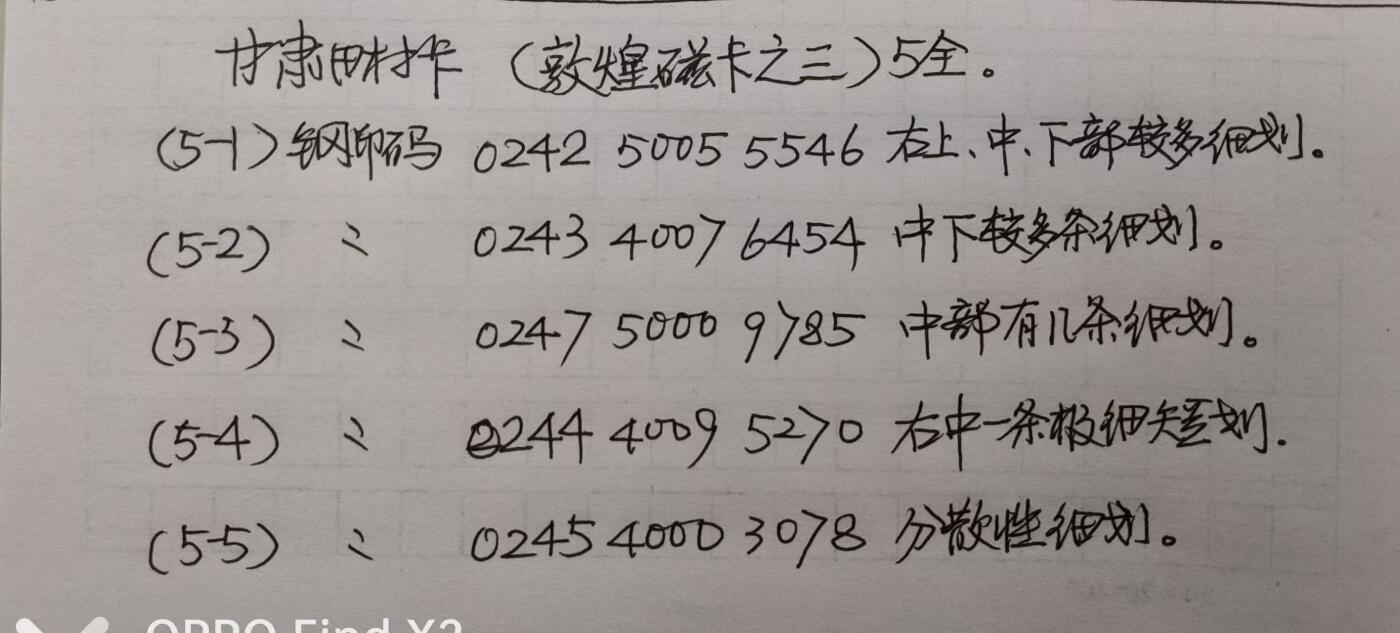 甘肃田村卡（敦煌磁卡之三）5全。
(5-1)钢印码 0242 5005 5546 右上、中、下部较多细划。
(5-2) 〃 0243 4007 6454 中下较多条细划。
(5-3) 〃 0247 5000 9785 中部有几条细划。
(5-4) 〃 0244 4009 5270 右中一条极细短划.
(5-5) 〃 0245 4000 3078 分散性细划。
OPPO Find X2